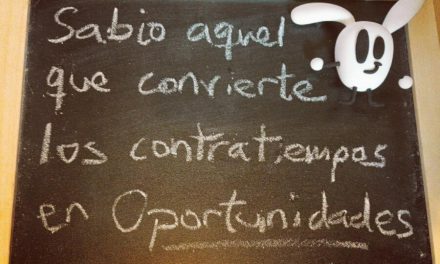 Sabio aquel
que convierte
los contratiempos
en Oportunidades